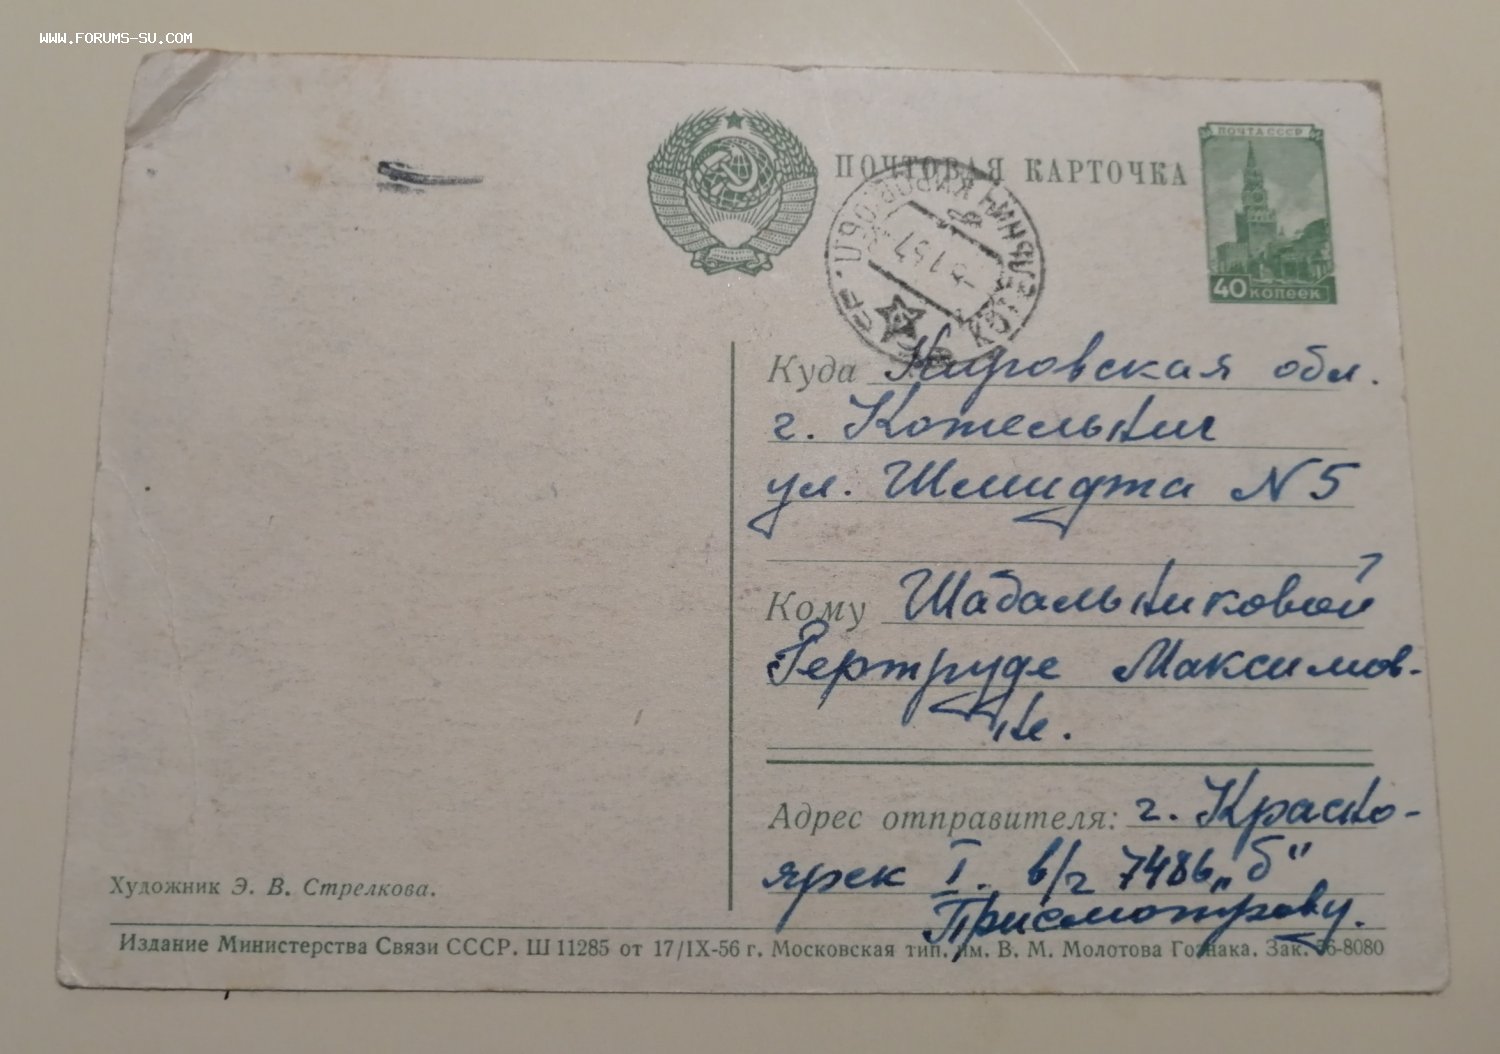 WWW.FORUMS-SU.COM
ПОЧТОВАЯ КАРТОЧКА
ПОЧТА СССР
40 копеек
КОТЕЛЬНИЧ КИРОВ. ОБЛ.
Куда Кировская обл.
г. Котельнич
ул. Шмидта N 5
Кому Шабальниковой
Гертруде Максимов-
не.
Адрес отправителя: г. Красно-
ярск I. в/ч 7486 „Б"
Присмотрову.
Художник Э. В. Стрелкова.
Издание Министерства Связи СССР. Ш 11285 от 17/IX-56 г. Московская тип. им. В. М. Молотова Гознака. Зак. 56-8080